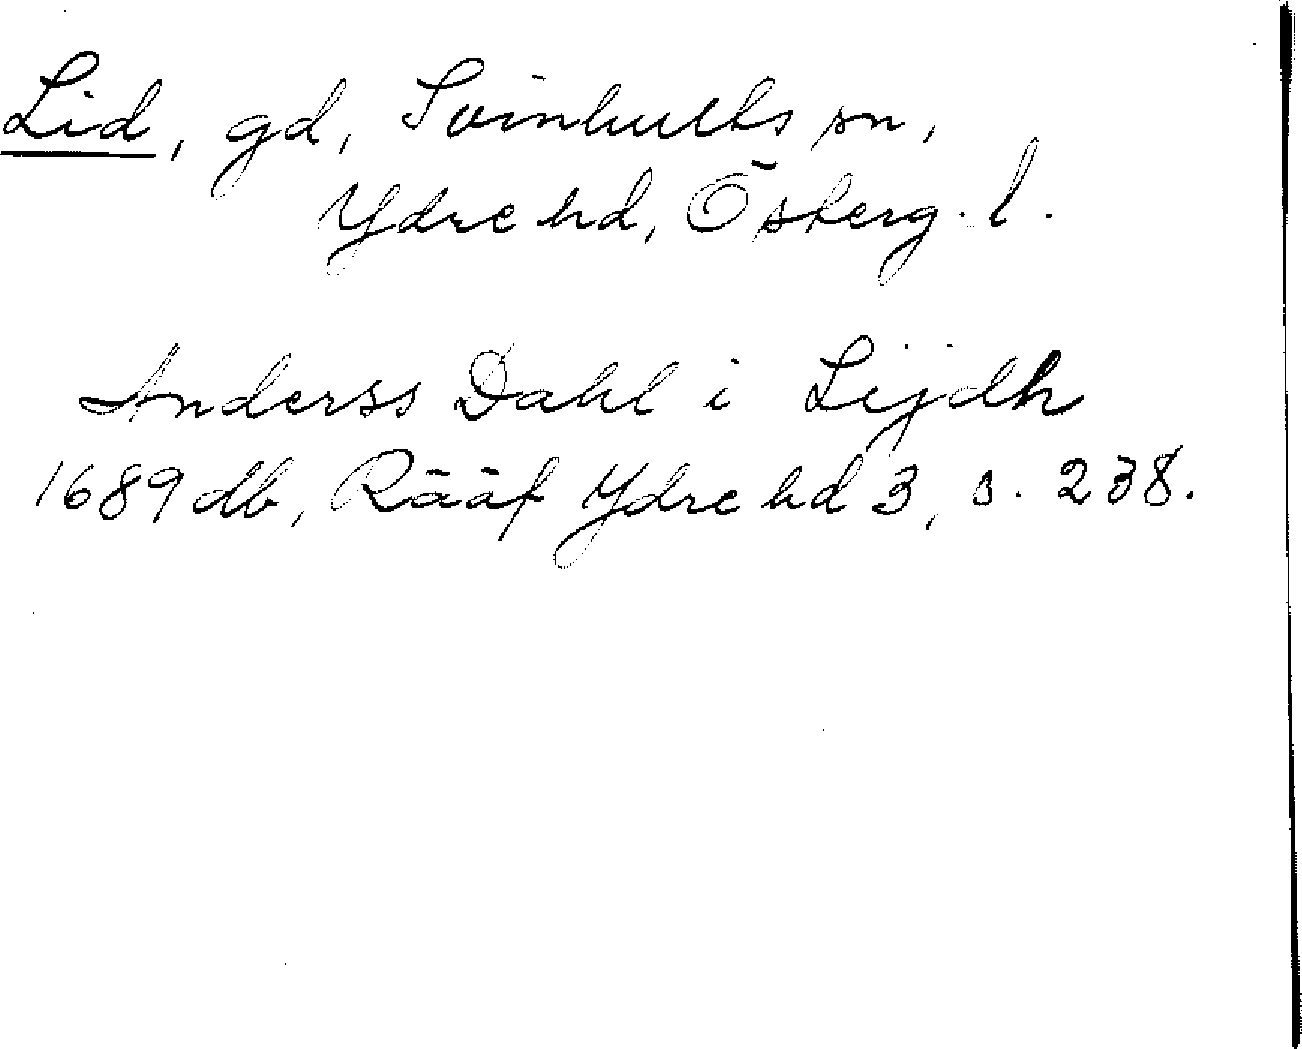 Lid, gd, Svinhults sn,
Ydre hd, Österg. l.
Anderss Dahl i Lijdh
1689 db, Rääf Ydre hd 3, s. 238.